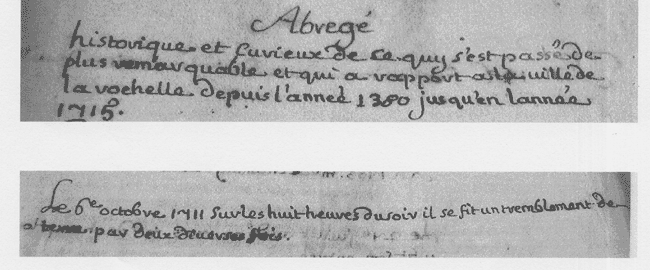 Abregé
historique et Curieux de ce quy s'est passé de
plus remarquable et qui a rapport a la ville de
la rochelle depuis l'anneé 1380 jusqu'en lannéé
1715.
Le 6e octobre 1711 sur les huit heures du soir il se fit un tremblement de
par deux fois.